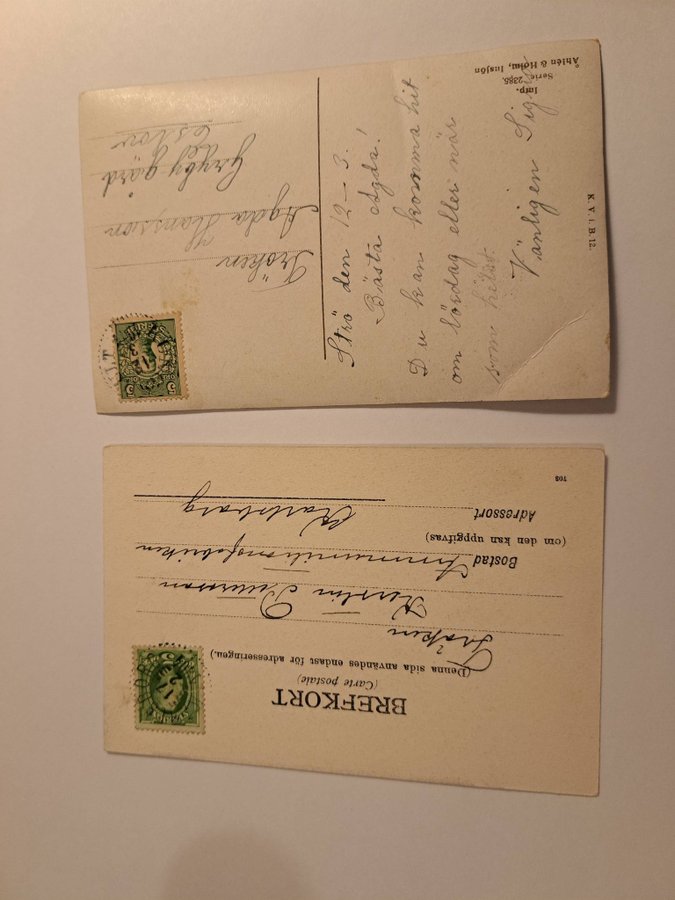 Imp.
Serie 2385.
Åhlén & Holm, Insjön
K. V. i B. 12.
Strö den 12–3.
Bästa Agda!
Du kan komma hit
om lördag eller när
som hälst.
Vänligen Signe
Fröken
Agda Hansson
gård
BREFKORT
(Carte postale)
(Denna sida användes endast för adresseringen.)
Fröken
Kerstin
Bostad Ammunitionsfabriken
(om den kan uppgifvas)
Adressort Karlsborg
703